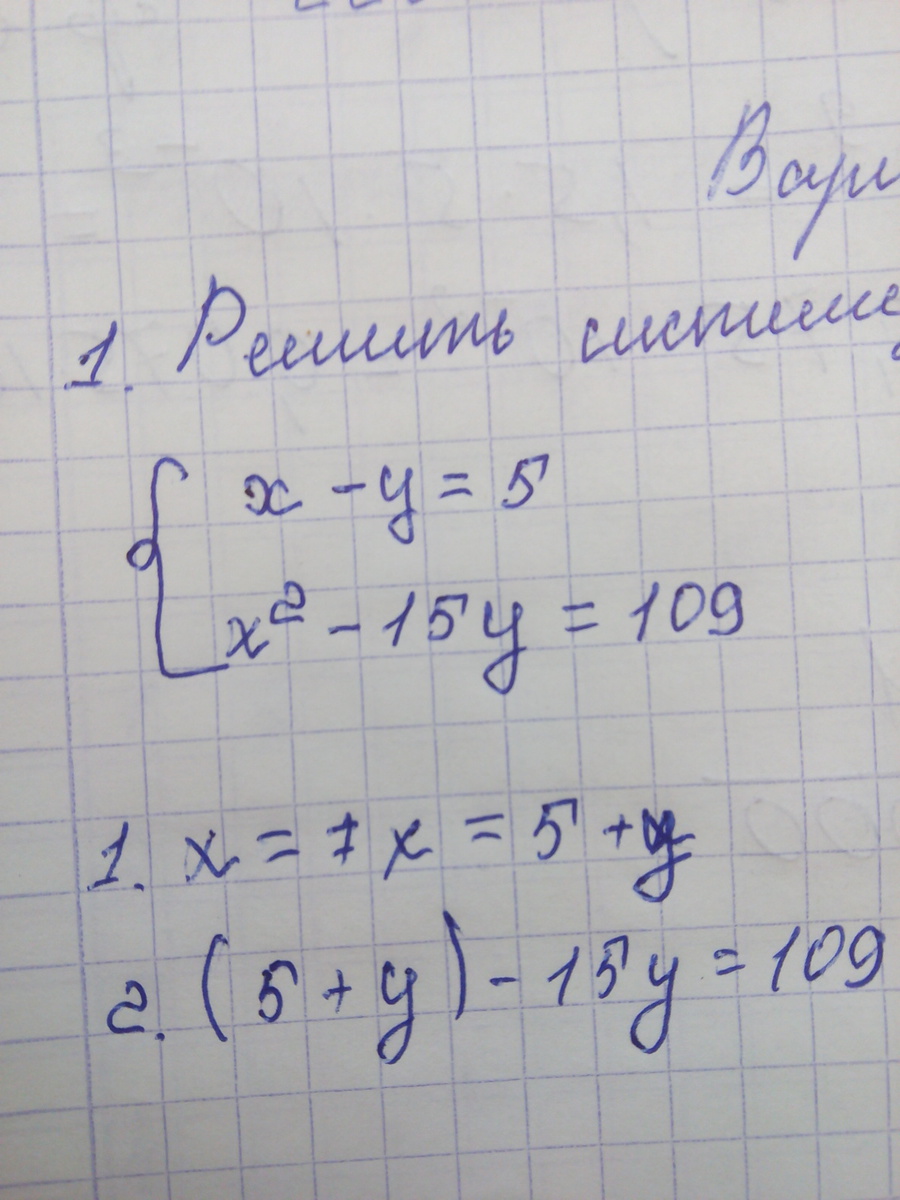 Вари
1. Решить систему
x - y = 5
x² - 15y = 109
1. x = 7 x = 5 + y
2. (5 + y) - 15y = 109